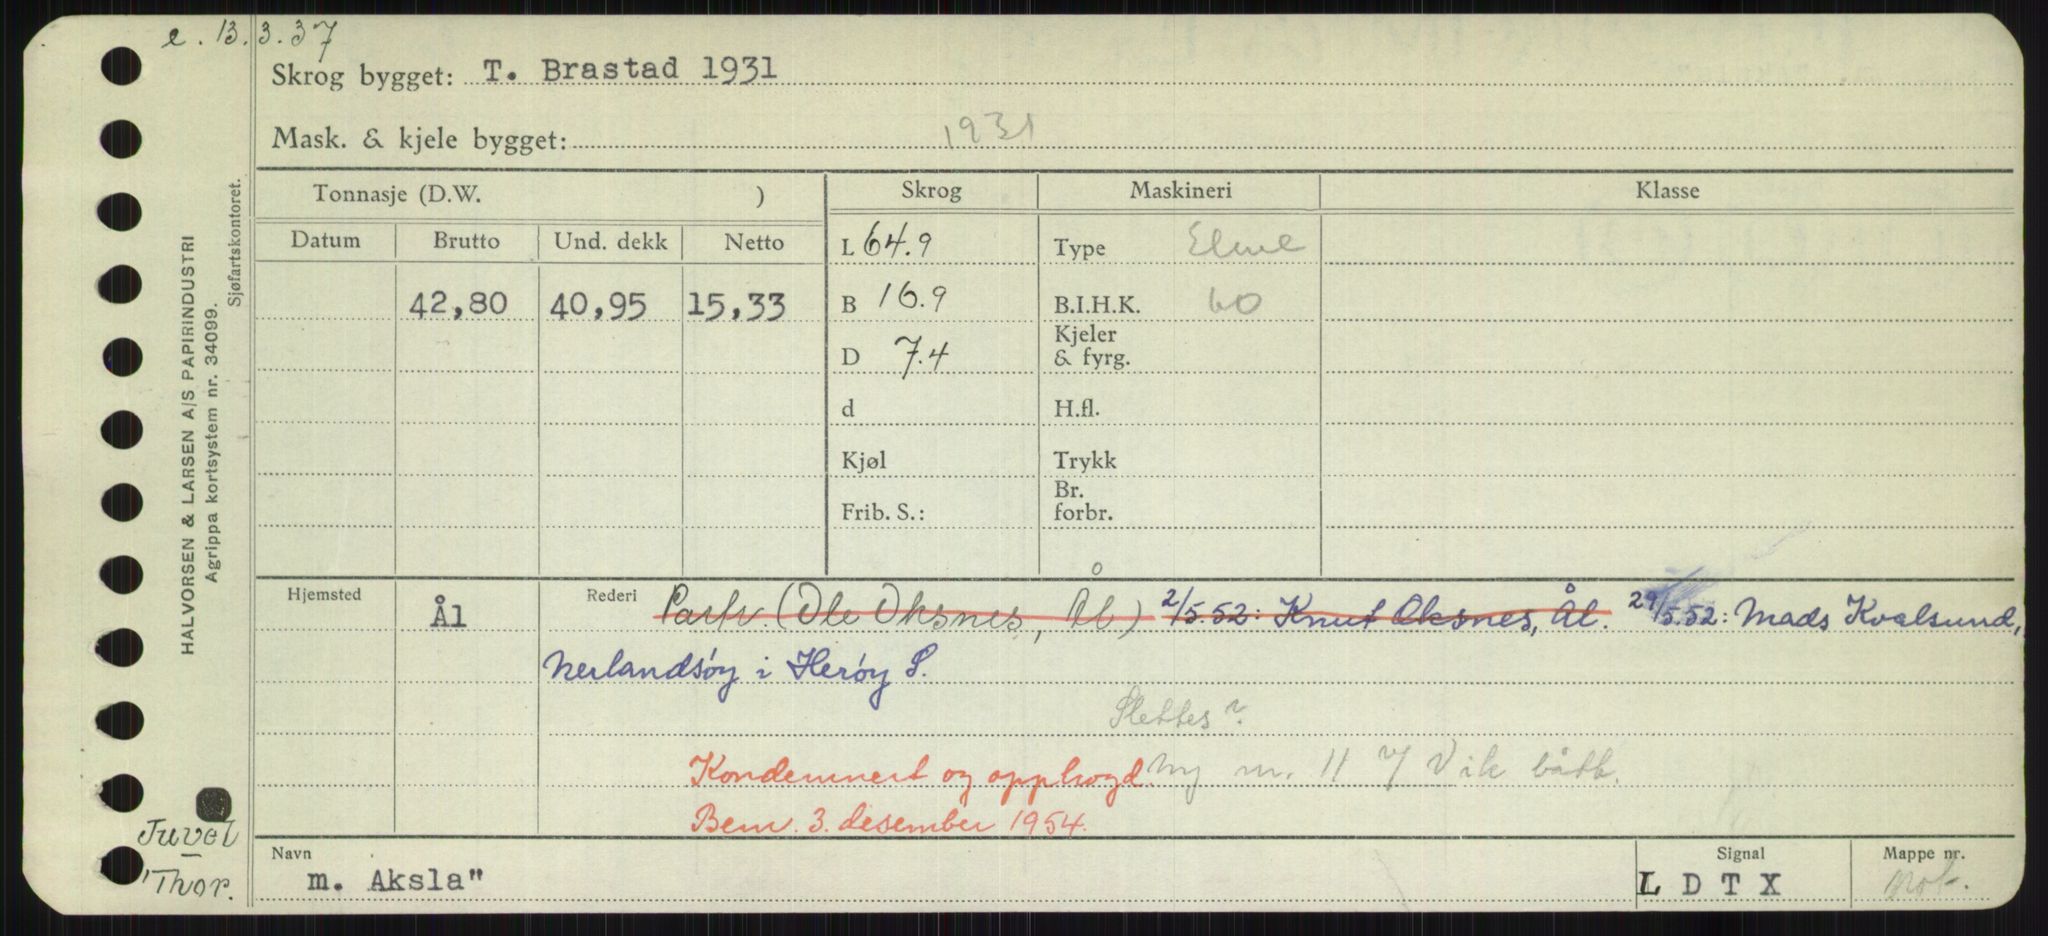 e. 13.3.37
Skrog bygget: T. Brastad 1931
Mask. & kjele bygget: 1931
Tonnasje (D.W. )
Skrog
Maskineri
Klasse
Datum
Brutto
Und. dekk
Netto
42,80
40,95
15,33
L 64.9
B 16.9
D 7.4
d
Kjøl
Frib. S.:
Type
B.I.H.K. 60
Kjeler
& fyrg.
H.fl.
Trykk
Br.
forbr.
Hjemsted
Ål
Rederi Partr. (Ole Oksnes, Ål) 2/5.52: Knut Oksnes, Ål. 29/5.52: Mads Kvalsund,
Nerlandsøy i Herøy S.
Slettes?
Kondemnert og opphogd. Ny m. 11 Vik båtb.
Bem. 3. desember 1954.
Navn
m. Aksla"
Signal
L D T X
Mappe nr.
Mot.
HALVORSEN & LARSEN A/S PAPIRINDUSTRI
Agrippa kortsystem nr. 34099.
Sjøfartskontoret.
Juvel
Thor.